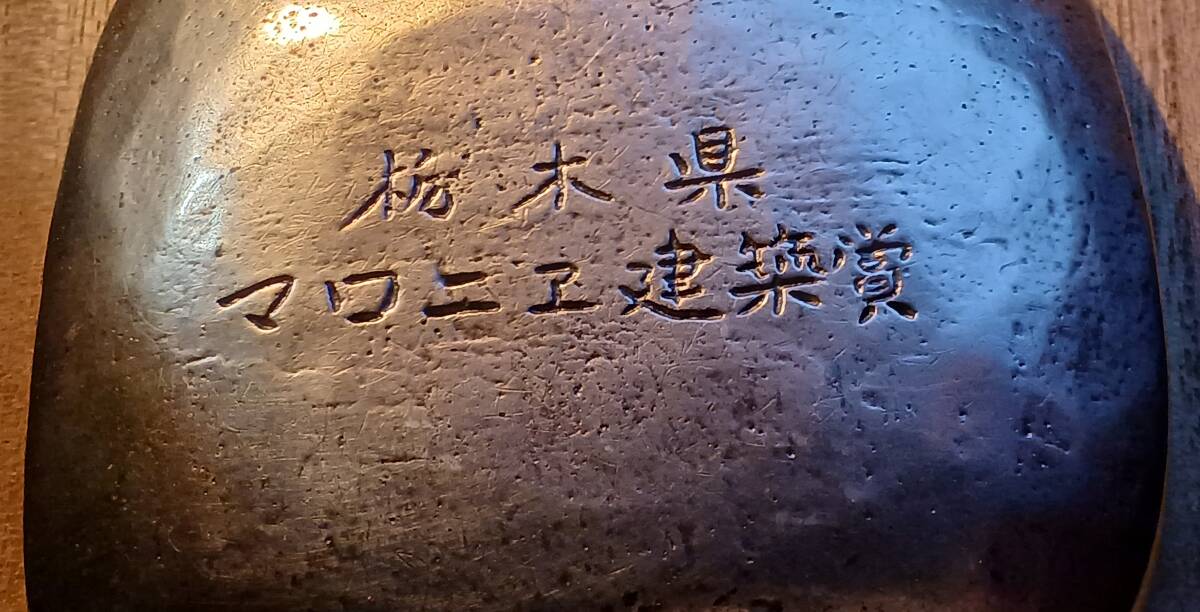 栃木県
マロニヱ建築賞